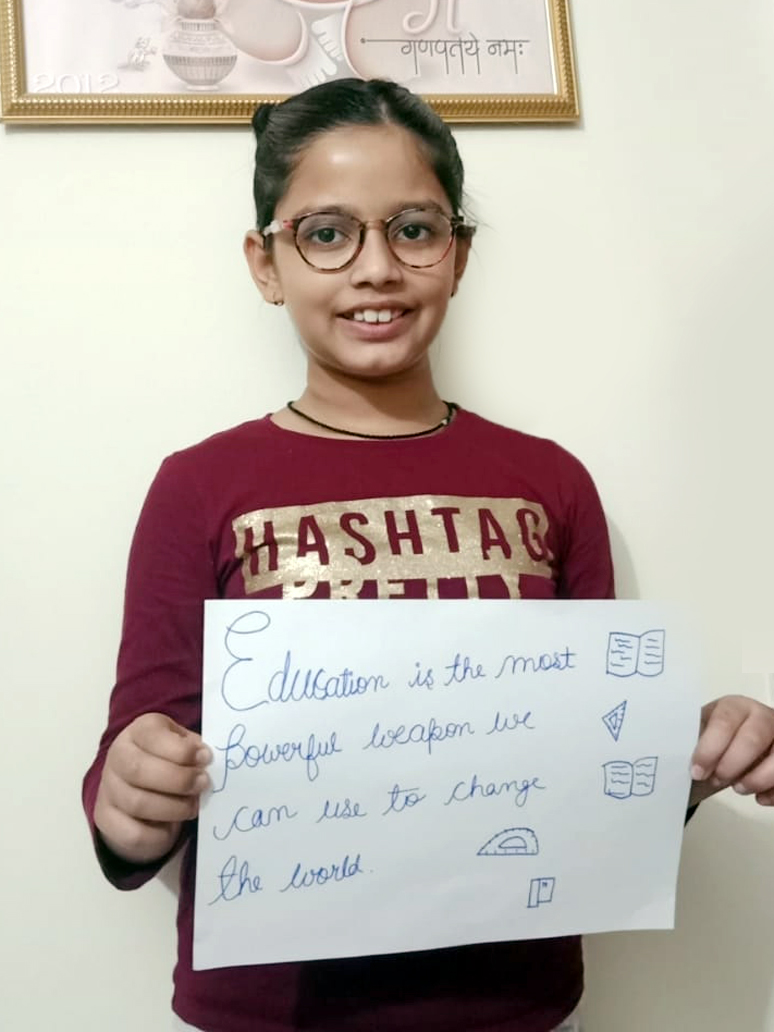 गणपतये नमः
2012
HASHTAG
PRETTY
Education is the most
powerful weapon we
can use to change
the world.